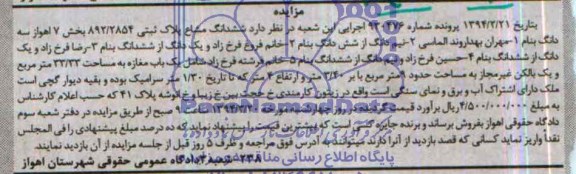 مزایده
بتاریخ ۱۳۹۴/۲/۲۱ پرونده شماره ۹۳۰۴۷۶ اجرایی این شعبه در نظر دارد ششدانگ مشاع پلاک ثبتی ۸۹۲/۲۸۵۴ بخش ۷ اهواز سه
دانگ بنام ۱-مهران بهداروند الماسی ۲-نیم دانگ از شش دانگ بنام ۲-خانم فروغ فرخ زاد و یک دانگ از ششدانگ بنام ۳-رضا فرخ زاد و یک
دانگ از ششدانگ بنام ۴-حسین فرخ زاد و نیم دانگ از ششدانگ بنام ۵-خانم فرشته فرخ زاد شامل یک باب مغازه به مساحت ۳۳/۳۳ متر مربع
و یک بالکن غیرمجاز به مساحت حدود ۹ متر مربع با بر ۳/۴۰ متر و ارتفاع ۴ متر که تا تاریخ ۱/۳۰ متر سرامیک بوده و بقیه دیوار گچی است
ملک دارای اشتراک آب و برق و نمای سنگی است واقع در زیتون کارمندی خ حجت بین خ زیبا و خ انوشه پلاک ۴۱ که حسب اعلام کارشناس
به مبلغ ۴/۵۰۰/۰۰۰/۰۰۰ ریال برآورد قیمت گردیده در روز چهارشنبه ۹ صبح از طریق مزایده در دفتر شعبه سوم
دادگاه حقوقی اهواز بفروش برساند و برنده جایزه کسی است که بیشترین قیمت را پیشنهاد نماید که ده درصد مبلغ پیشنهادی را فی المجلس
نقداً واریز نماید کسانی که قصد بازدید از آنرا دارند میتوانند به آدرس فوق مراجعه و ظرف ۵ روز قبل از جلسه مزایده از آن بازدید نمایند.
۲۳۸ شعبه ۳ دادگاه عمومی حقوقی شهرستان اهواز
ParsNamadData
پایگاه اطلاع رسانی مناقصه